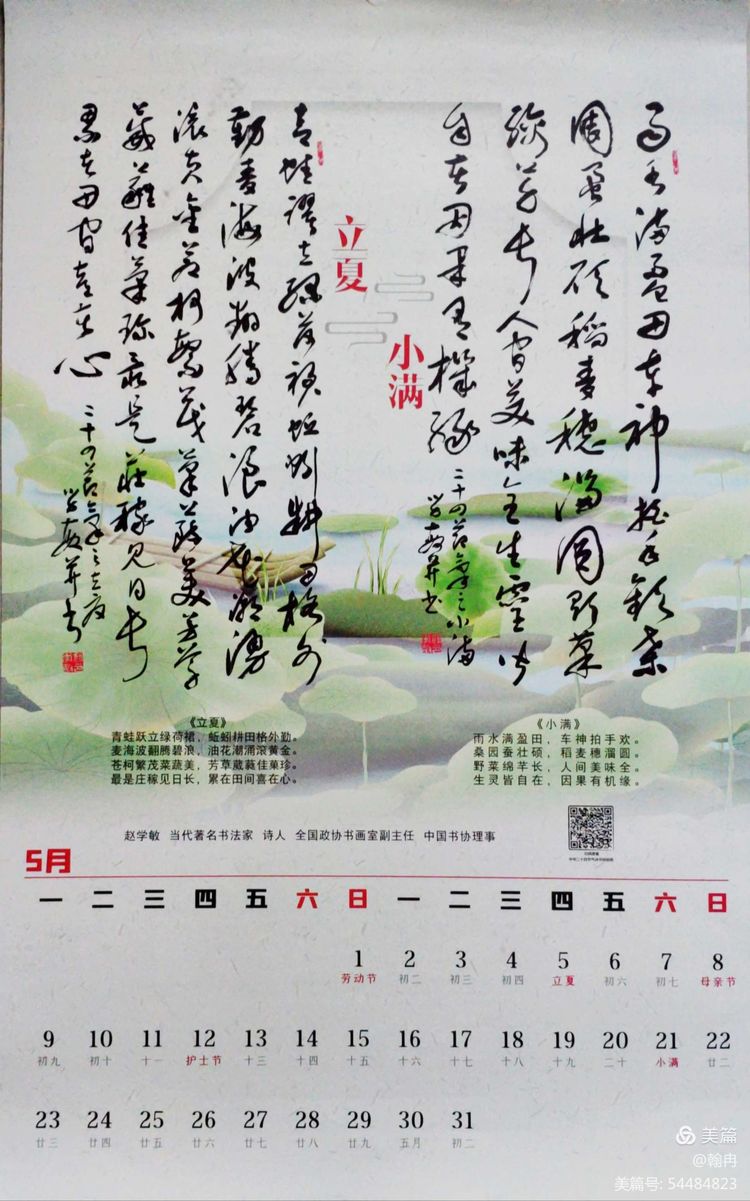 雨水满盈田车神拍手欢桑
园蚕壮硕稻麦穗溜圆野菜
绵芊长人间美味全生灵皆
自在因果有机缘
二十四节气之小满
学敏并书
小满
立夏
青蛙跃立绿荷裙蚯蚓耕田格外
勤麦海波翻腾碧浪油花潮涌
滚黄金苍柯繁茂菜蔬美芳草
葳蕤佳菓珍最是庄稼见日长
累在田间喜在心
二十四节气之立夏
学敏并书
《立夏》
青蛙跃立绿荷裙，蚯蚓耕田格外勤。
麦海波翻腾碧浪，油花潮涌滚黄金。
苍柯繁茂菜蔬美，芳草葳蕤佳菓珍。
最是庄稼见日长，累在田间喜在心。
《小满》
雨水满盈田，车神拍手欢。
桑园蚕壮硕，稻麦穗溜圆。
野菜绵芊长，人间美味全。
生灵皆自在，因果有机缘。
赵学敏 当代著名书法家 诗人 全国政协书画室副主任 中国书协理事
5月
一 二 三 四 五 六 日 一 二 三 四 五 六 日
1 2 3 4 5 6 7 8
劳动节 初二 初三 初四 立夏 初六 初七 母亲节
9 10 11 12 13 14 15 16 17 18 19 20 21 22
初九 初十 十一 护士节 十三 十四 十五 十六 十七 十八 十九 二十 小满 廿二
23 24 25 26 27 28 29 30 31
廿三 廿四 廿五 廿六 廿七 廿八 廿九 五月 初二
美篇
@翰冉
美篇号: 54484823